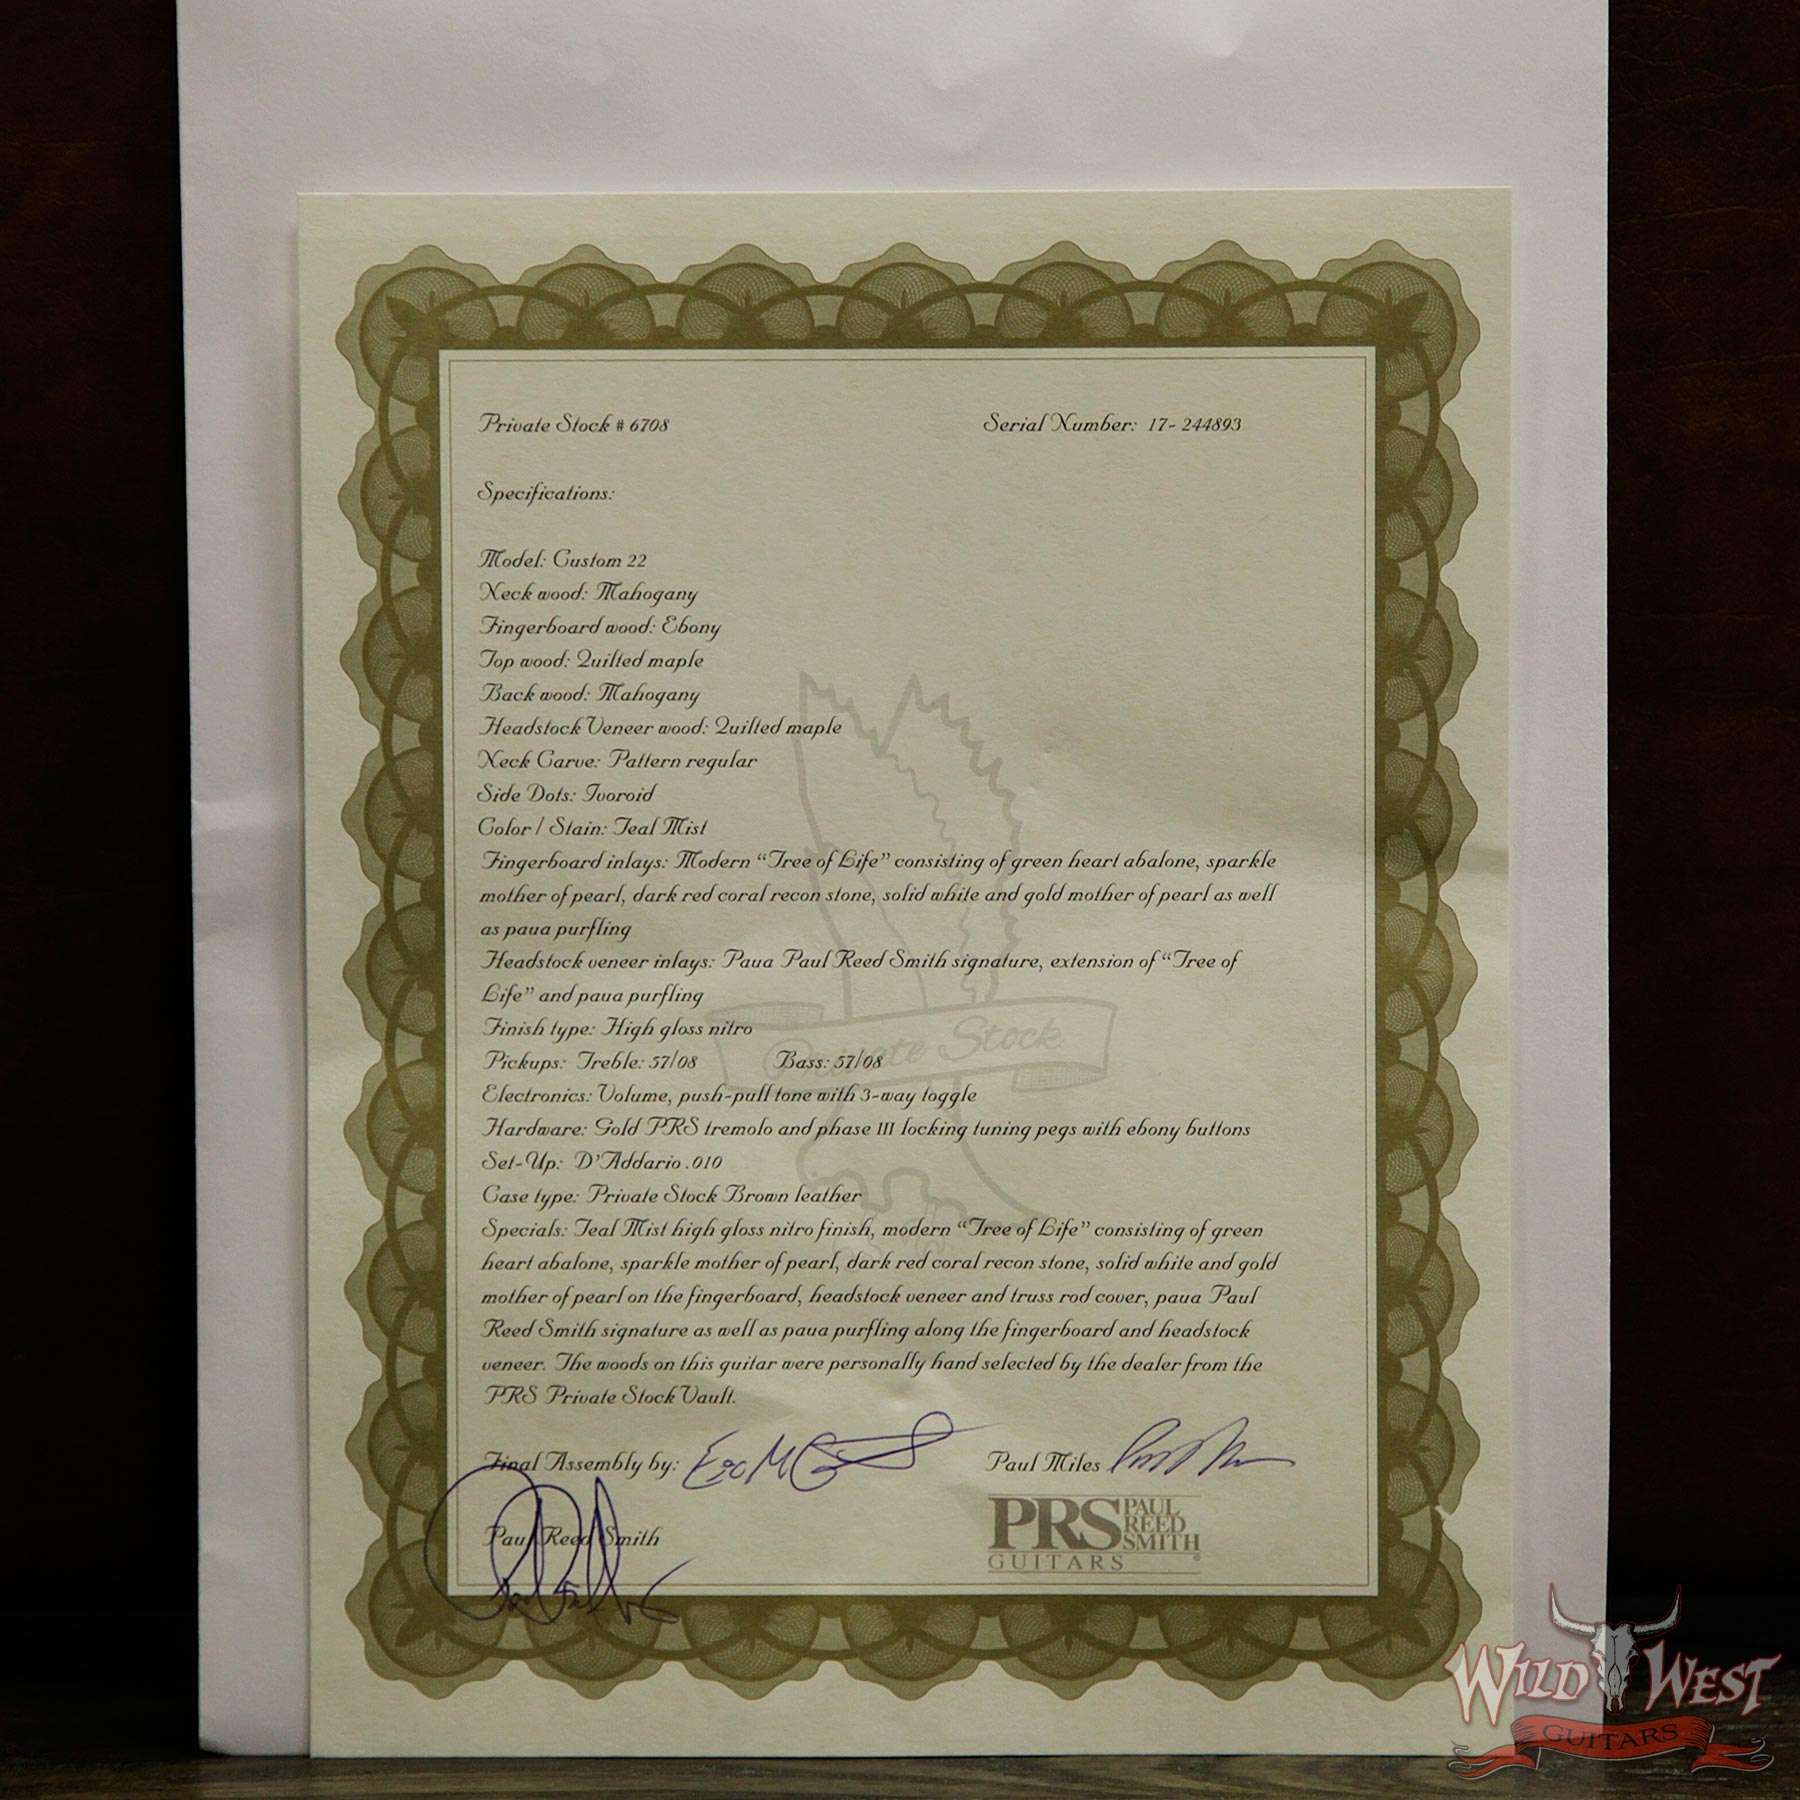 Private Stock # 6708 Serial Number: 17- 244893
Specifications:
Model: Custom 22
Neck wood: Mahogany
Fingerboard wood: Ebony
Top wood: Quilted maple
Back wood: Mahogany
Headstock Veneer wood: Quilted maple
Neck Carve: Pattern regular
Side Dots: Ivoroid
Color / Stain: Teal Mist
Fingerboard inlays: Modern “Tree of Life” consisting of green heart abalone, sparkle
mother of pearl, dark red coral recon stone, solid white and gold mother of pearl as well
as paua purfling
Headstock veneer inlays: Paua Paul Reed Smith signature, extension of “Tree of
Life” and paua purfling
Finish type: High gloss nitro
Private Stock
Pickups: Treble: 57/08 Bass: 57/08
Electronics: Volume, push-pull tone with 3-way toggle
Hardware: Gold PRS tremolo and phase III locking tuning pegs with ebony buttons
Set-Up: D'Addario .010
Case type: Private Stock Brown leather
Specials: Teal Mist high gloss nitro finish, modern “Tree of Life” consisting of green
heart abalone, sparkle mother of pearl, dark red coral recon stone, solid white and gold
mother of pearl on the fingerboard, headstock veneer and truss rod cover, paua Paul
Reed Smith signature as well as paua purfling along the fingerboard and headstock
veneer. The woods on this guitar were personally hand selected by the dealer from the
PRS Private Stock Vault.
Final Assembly by: Paul Miles
Paul Reed Smith
PRS PAUL REED SMITH
GUITARS
WILD WEST
GUITARS